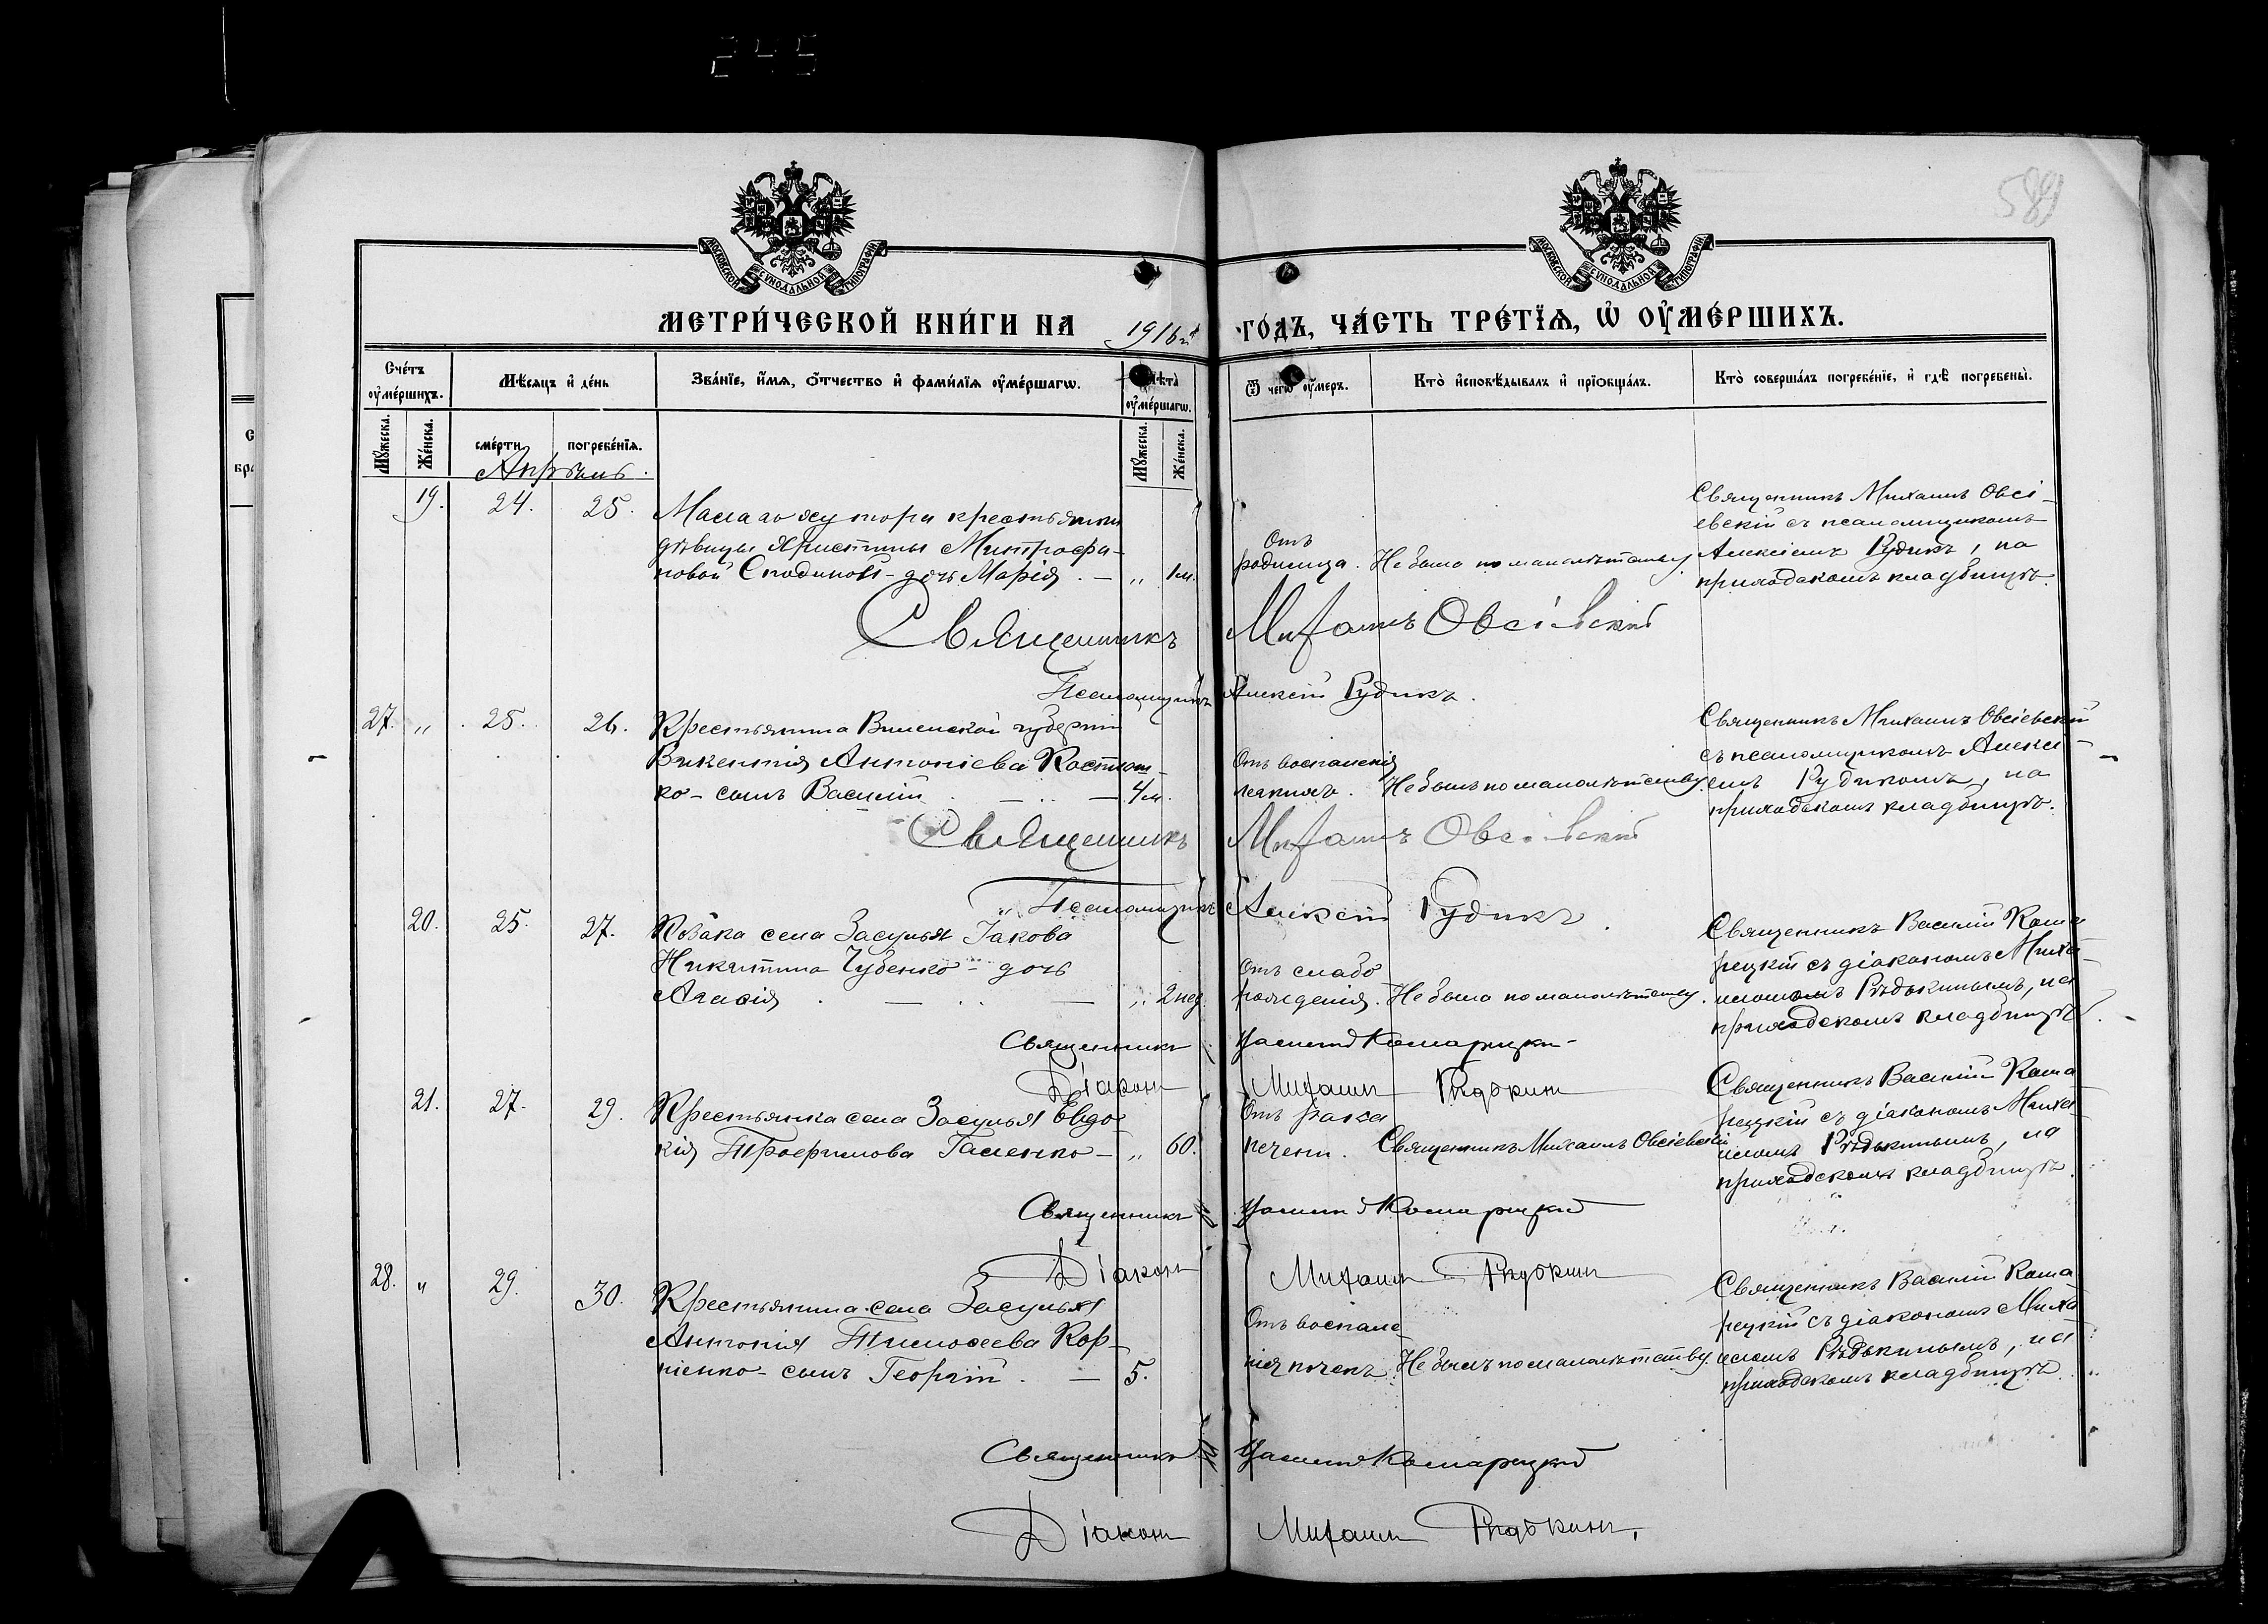 245
589
МОСКОВСКОЙ СѴНОДАЛЬНОЙ ТИПОГРАФІИ
МОСКОВСКОЙ СѴНОДАЛЬНОЙ ТИПОГРАФІИ
МЕТРИ́ЧЕСКОЙ КНИ́ГИ НА 1916й ГО́ДЪ, ЧА́СТЬ ТРЕ́ТЇѦ, Ѡ҆ ОУ҆МЕ́РШИХЪ.
Сче́тъ оу҆ме́ршихъ.
Мѣ́сяцъ и҆ де́нь
Зва́нїе, и҆́мѧ, ѻ҆́тчество и҆ фами́лїѧ оу҆ме́ршагѡ.
Лѣ́та оу҆ме́ршагѡ.
Ѿ чегѡ̀ оу҆́меръ.
Кто̀ и҆сповѣ́дывалъ и҆ прїѡбща́лъ.
Кто̀ соверша́лъ погребе́нїе, и҆ гдѣ̀ погребены̀.
Мꙋ́жеска. Же́нска. сме́рти погребе́нїѧ. Мꙋ́жеска. Же́нска.
Апрѣль.
19. 24. 25. хутора крестьянки
дѣвицы Христины Митрофа-
новой - дочь Марія. — „ 1 м.
Отъ
родимца. Не была по малолѣтству.
Священникъ Михаилъ Овсі-
евскій съ псаломщикомъ
Алексіемъ Рудикъ, на
приходскомъ кладбищѣ.
Священникъ Михаилъ Овсіевскій
Псаломщикъ Алексій Рудикъ.
27. „ 25. 26. Крестьянина Виленской губерніи
Викентія Антоніева
ко - сынъ Василій — 4 м.
Отъ воспаленія
легкихъ. Не былъ по малолѣтству.
Священникъ Михаилъ Овсіевскій
съ псаломщикомъ Алексі-
емъ Рудикомъ, на
приходскомъ кладбищѣ.
Священникъ Михаилъ Овсіевскій
Псаломщикъ Алексій Рудикъ.
20. 25. 27. Козака села Засулья Іакова
Никитина Чубенко - дочь
— „ 2 нед.
Отъ слабо
рожденія. Не была по малолѣтству.
Священникъ Василій Кома
рецкій съ діакономъ Миха-
иломъ Рѣдькинымъ, на
приходскомъ кладбищѣ.
Священникъ Василій Комарецкій
Діаконъ Михаилъ Рѣдькинъ
21. 27. 29. Крестьянка села Засулья Евдо
кія Трофимова Галенко — „ 60.
Отъ рака
печени. Священникъ Михаилъ Овсіевскій
Священникъ Василій Кома
рецкій съ діакономъ Миха
иломъ Рѣдькинымъ, на
приходскомъ кладбищѣ.
Священникъ Василій Комарецкій
Діаконъ Михаилъ Рѣдькинъ
28. „ 29. 30. Крестьянина села Засулья
Антонія Тимоѳеева Кор-
ніенко - сынъ Георгій. — 5.
Отъ воспале
нія почекъ. Не былъ по малолѣтству.
Священникъ Василій Кома
рецкій съ діакономъ Миха
иломъ Рѣдькинымъ, на
приходскомъ кладбищѣ.
Священникъ Василій Комарецкій
Діаконъ Михаилъ Рѣдькинъ.